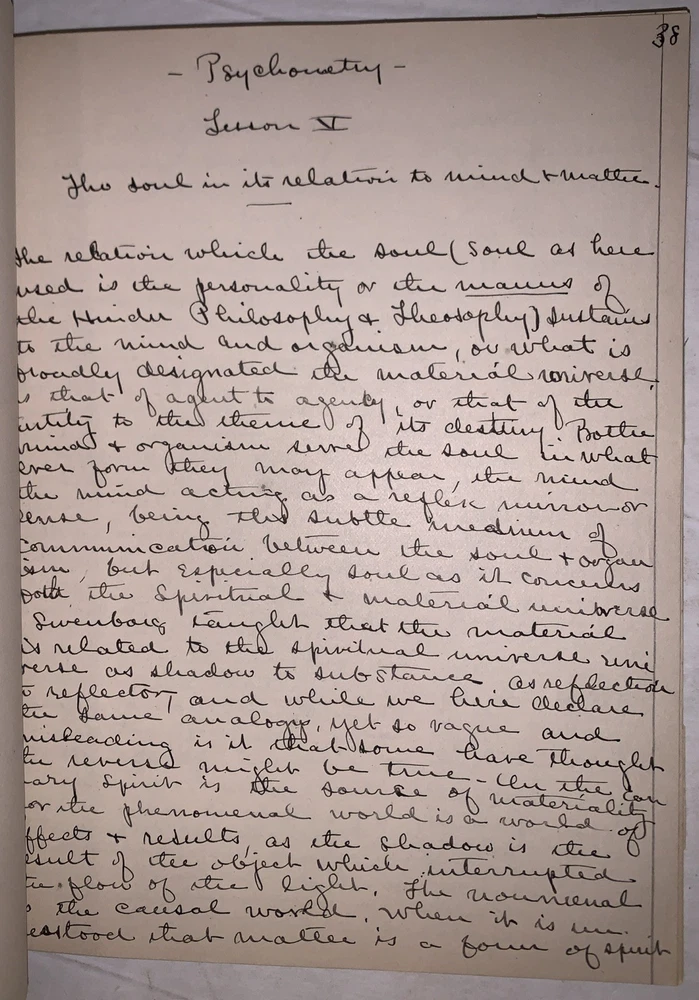 38
- Psychometry -
Lesson V
The soul in its relation to mind & matter.
the relation which the soul (soul as here
used is the personality or the manus of
the Hindu Philosophy & Theosophy) sustains
to the mind and organism, or what is
broadly designated the material universe,
s that of agent to agency, or that of the
entity to the theme of its destiny. Both
mind & organism serve the soul in what
ever form they may appear, the mind
the mind acting as a reflex mirror or
sense, being the subtle medium of
communication between the soul & organ
ism, but especially soul as it concerns
both the Spiritual & material universe
Swenborg taught that the material
is related to the spiritual universe uni
verse as shadow to substance as reflection
reflector, and while we here declare
the same analogy, yet so vague and
misleading is it that some have thought
the reverse might be true - On the con
rary Spirit is the source of materiality
or the phenomenal world is a world of
ffects & results, as the shadow is the
esult of the object which interrupted
the flow of the light. The noumenal
s the causal world. When it is un
erstood that matter is a form of spirit